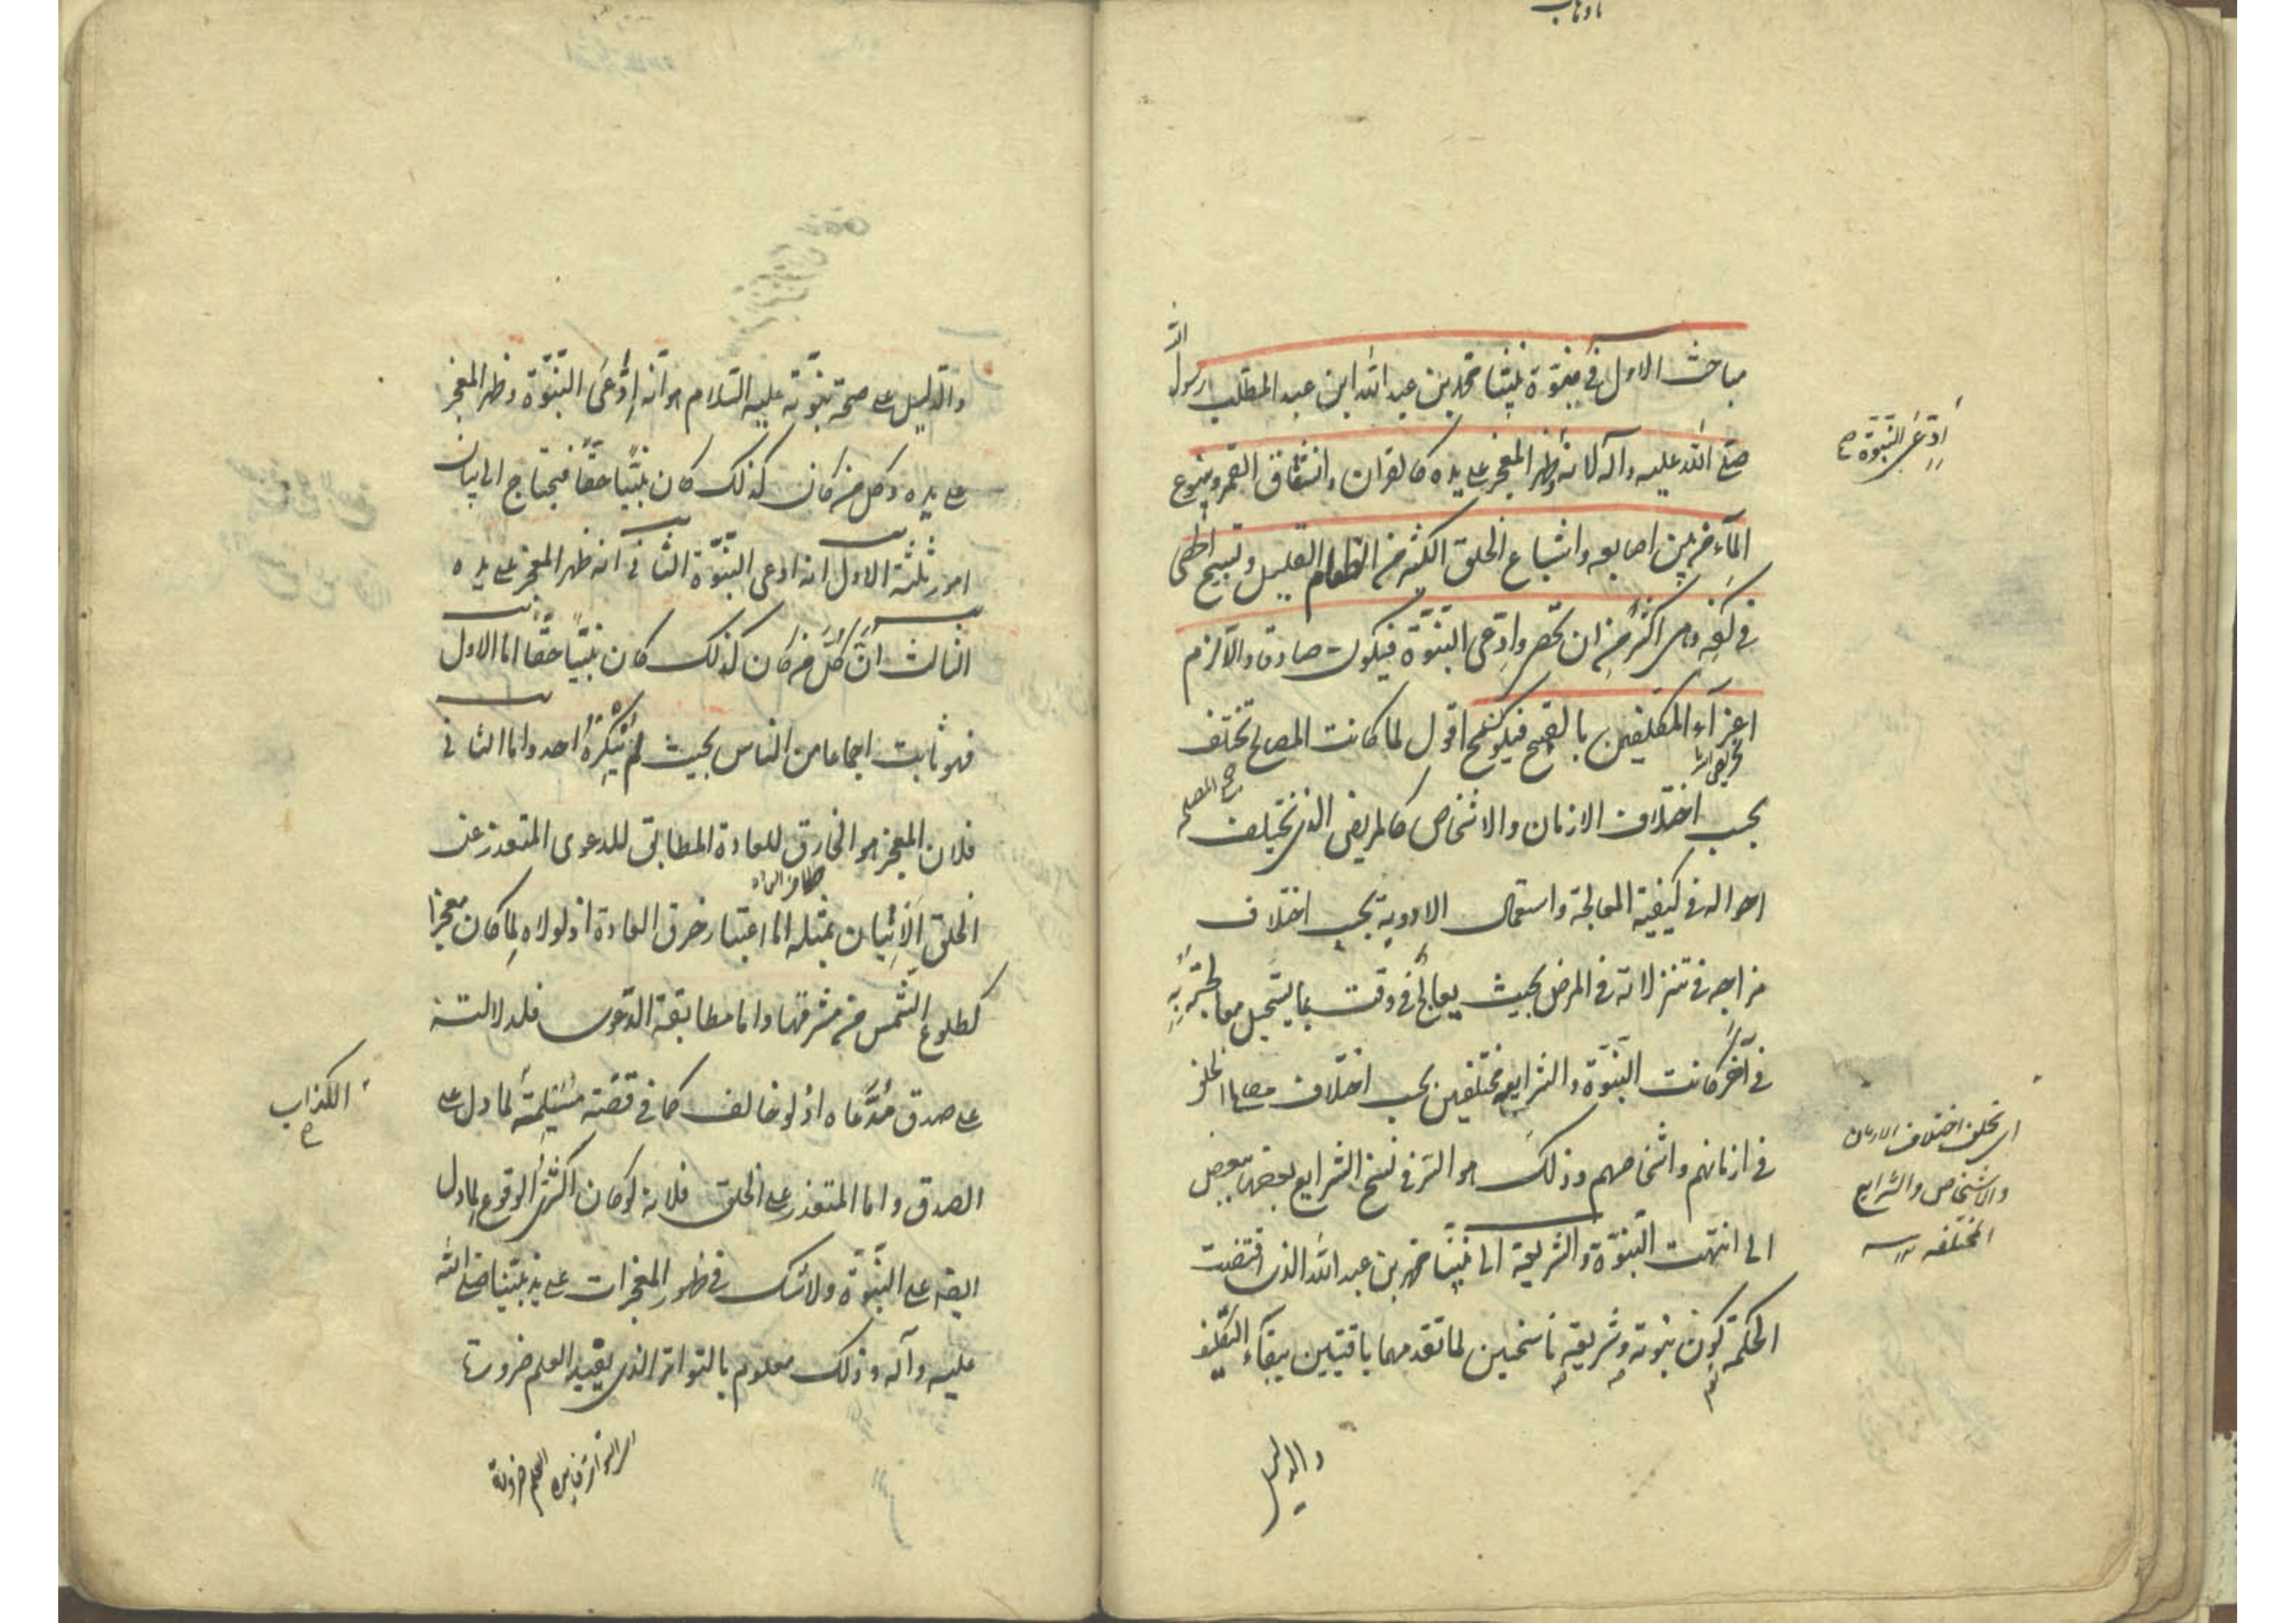 مباحث الاول فی نبوّة نبیّنا محمد بن عبد الله ابن عبد المطلب رسول الله
صلی الله علیه وآله لانه ظهر المعجز علی یده کالقران وانشقاق القمر وینبوع
المآء من بین اصابعه واشباع الخلق الکثیر من الطعام القلیل وتسبیح الحصی
فی کفه وهی اکثر من ان تحصر وادّعی النبوّة فیکون صادقا والّا لزم
اغرآء المکلفین بالقبیح فیکون قبیح اقول لما کانت المصالح تختلف
بحسب اختلاف الازمان والاشخاص کالمریض الذی تختلف
احواله فی کیفیة المعالجة واستعمال الادویة بحسب اختلاف
مزاجه فی تنزلاته فی المرض بحیث یعالج فی وقت بما یستحیل معالجته به
فی آخر کانت النبوّة والشرایع مختلفین بحسب اختلاف مصالح الخلق
فی ازمانهم واشخاصهم وذلک هو السّر فی نسخ الشرایع بعضها ببعض
الی انتهت النبوّة والشریعة الی نبینا محمد بن عبد الله الذی اقتضت
الحکمة کون نبوته وشریعته ناسخین لما تقدمهما باقیتین ببقآء التکلیف
والدلیل
ادّعی النبوّة صح
ای تخلق اختلاف الازمان
والاشخاص والشرایع
المختلفه
والدلیل علی صحة نبوّته علیه السّلام هو انه ادّعی النبوّة وظهر المعجز
علی یده وکل من کان کذلک کان نبیّا حقّا فیحتاج الی بیان
امور ثلثة الاول انه ادعی النبوّة الثانی انه ظهر المعجز علی یده
الثالث انّ کلّ من کان کذلک کان نبیّا حقّا اما الاول
فهو ثابت اجماعا من الناس بحیث لم ینکره احد واما الثانی
فلان المعجز هو الخارق للعادة المطابق للدعوی المتعذر عن
الخلق الاتیان بمثله اما اعتبار خرق العادة اذ لولاه لما کان معجزا
کطلوع الشّمس من مشرقها واما مطابقة الدّعوی فلدلالته
علی صدق مدّعاه اذ لو خالف کما فی قصّة مسیلمة لما دل علی
الصدق واما المتعذر علی الخلق فلانه لو کان اکثری الوقوع لما دل
ایضا علی النبوّة ولا شک فی ظهور المعجزات علی ید نبیّنا صلی الله
علیه وآله وذلک معلوم بالتواتر الذی یفید العلم ضرورتا
الکذاب